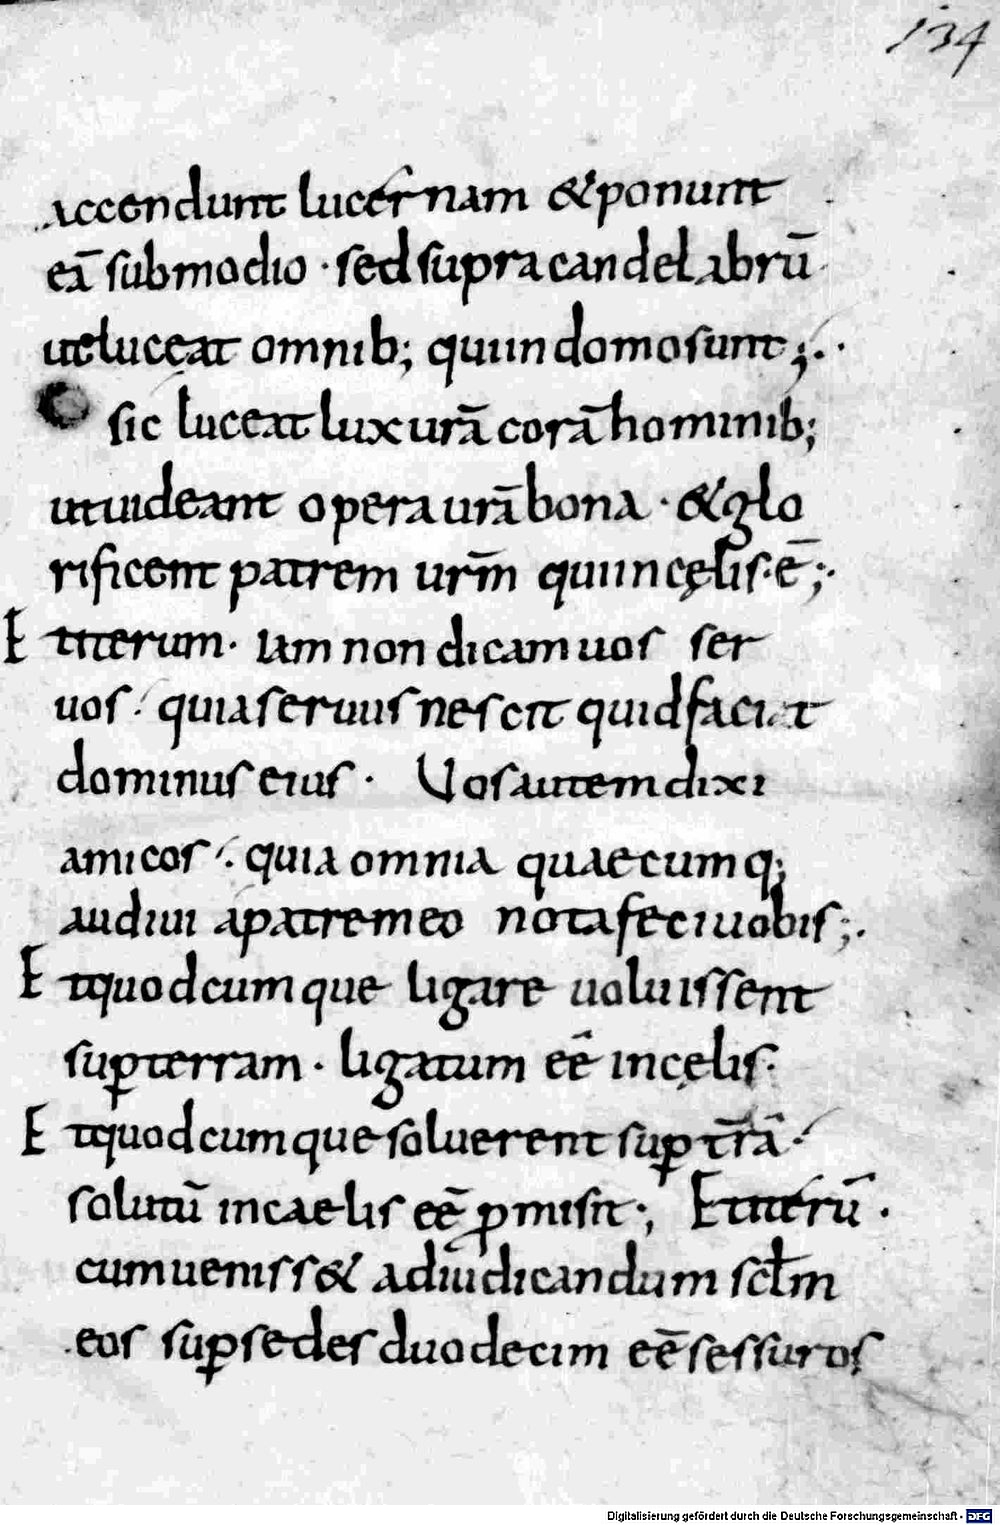 134
Accendunt lucernam & ponunt
eā submodio · sed supra candelabrū
utluceat omnib; quiindomosunt;.·
sic luceat lux urā corā hominib;
utuideant opera urā bona · & glo
rificent patrem urm̄ quiincęlis·ē;·
E titerum· Iam non dicam uos ser
uos : quia seruus nescit quidfaciat
dominus eius · Uos autem dixi
amicos : quia omnia quaecumq;
audiui apatremeo nota feci uobis;·
E tquodcumque ligare uoluissent
suꝑterram · ligatum eē incęlis·
E tquodcumque soluerent suꝑ tr̄ā ·
solutū incaelis eē ꝓmisit·; Etiterū ·
cumueniss& adiudicandum sclm̄
eos suꝑ sedes duodecim eē sessuros
Digitalisierung gefördert durch die Deutsche Forschungsgemeinschaft - DFG